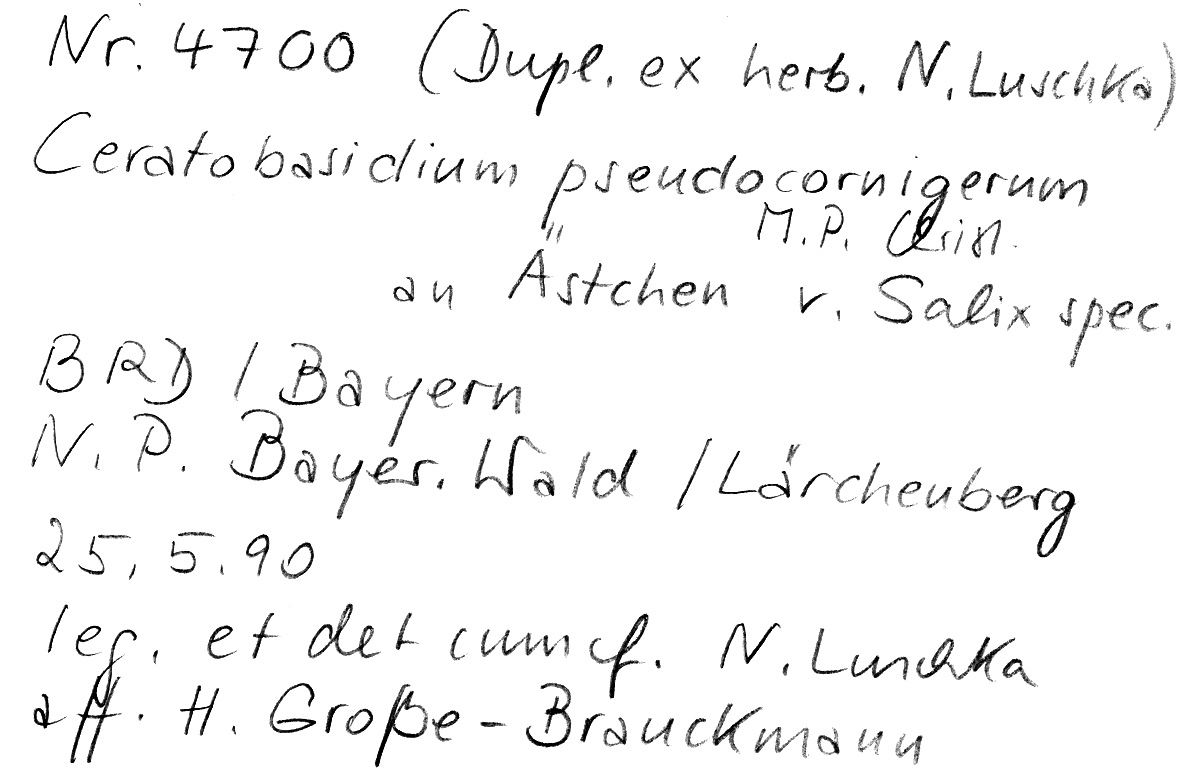 Nr. 4700 (Dupl. ex herb. N. Luschka)
Ceratobasidium pseudocornigerum
M.P. Christ.
an Ästchen v. Salix spec.
BRD / Bayern
N.P. Bayer. Wald / Lärchenberg
25.5.90
leg. et det cum cf. N. Luschka
aff. H. Große-Brauckmann